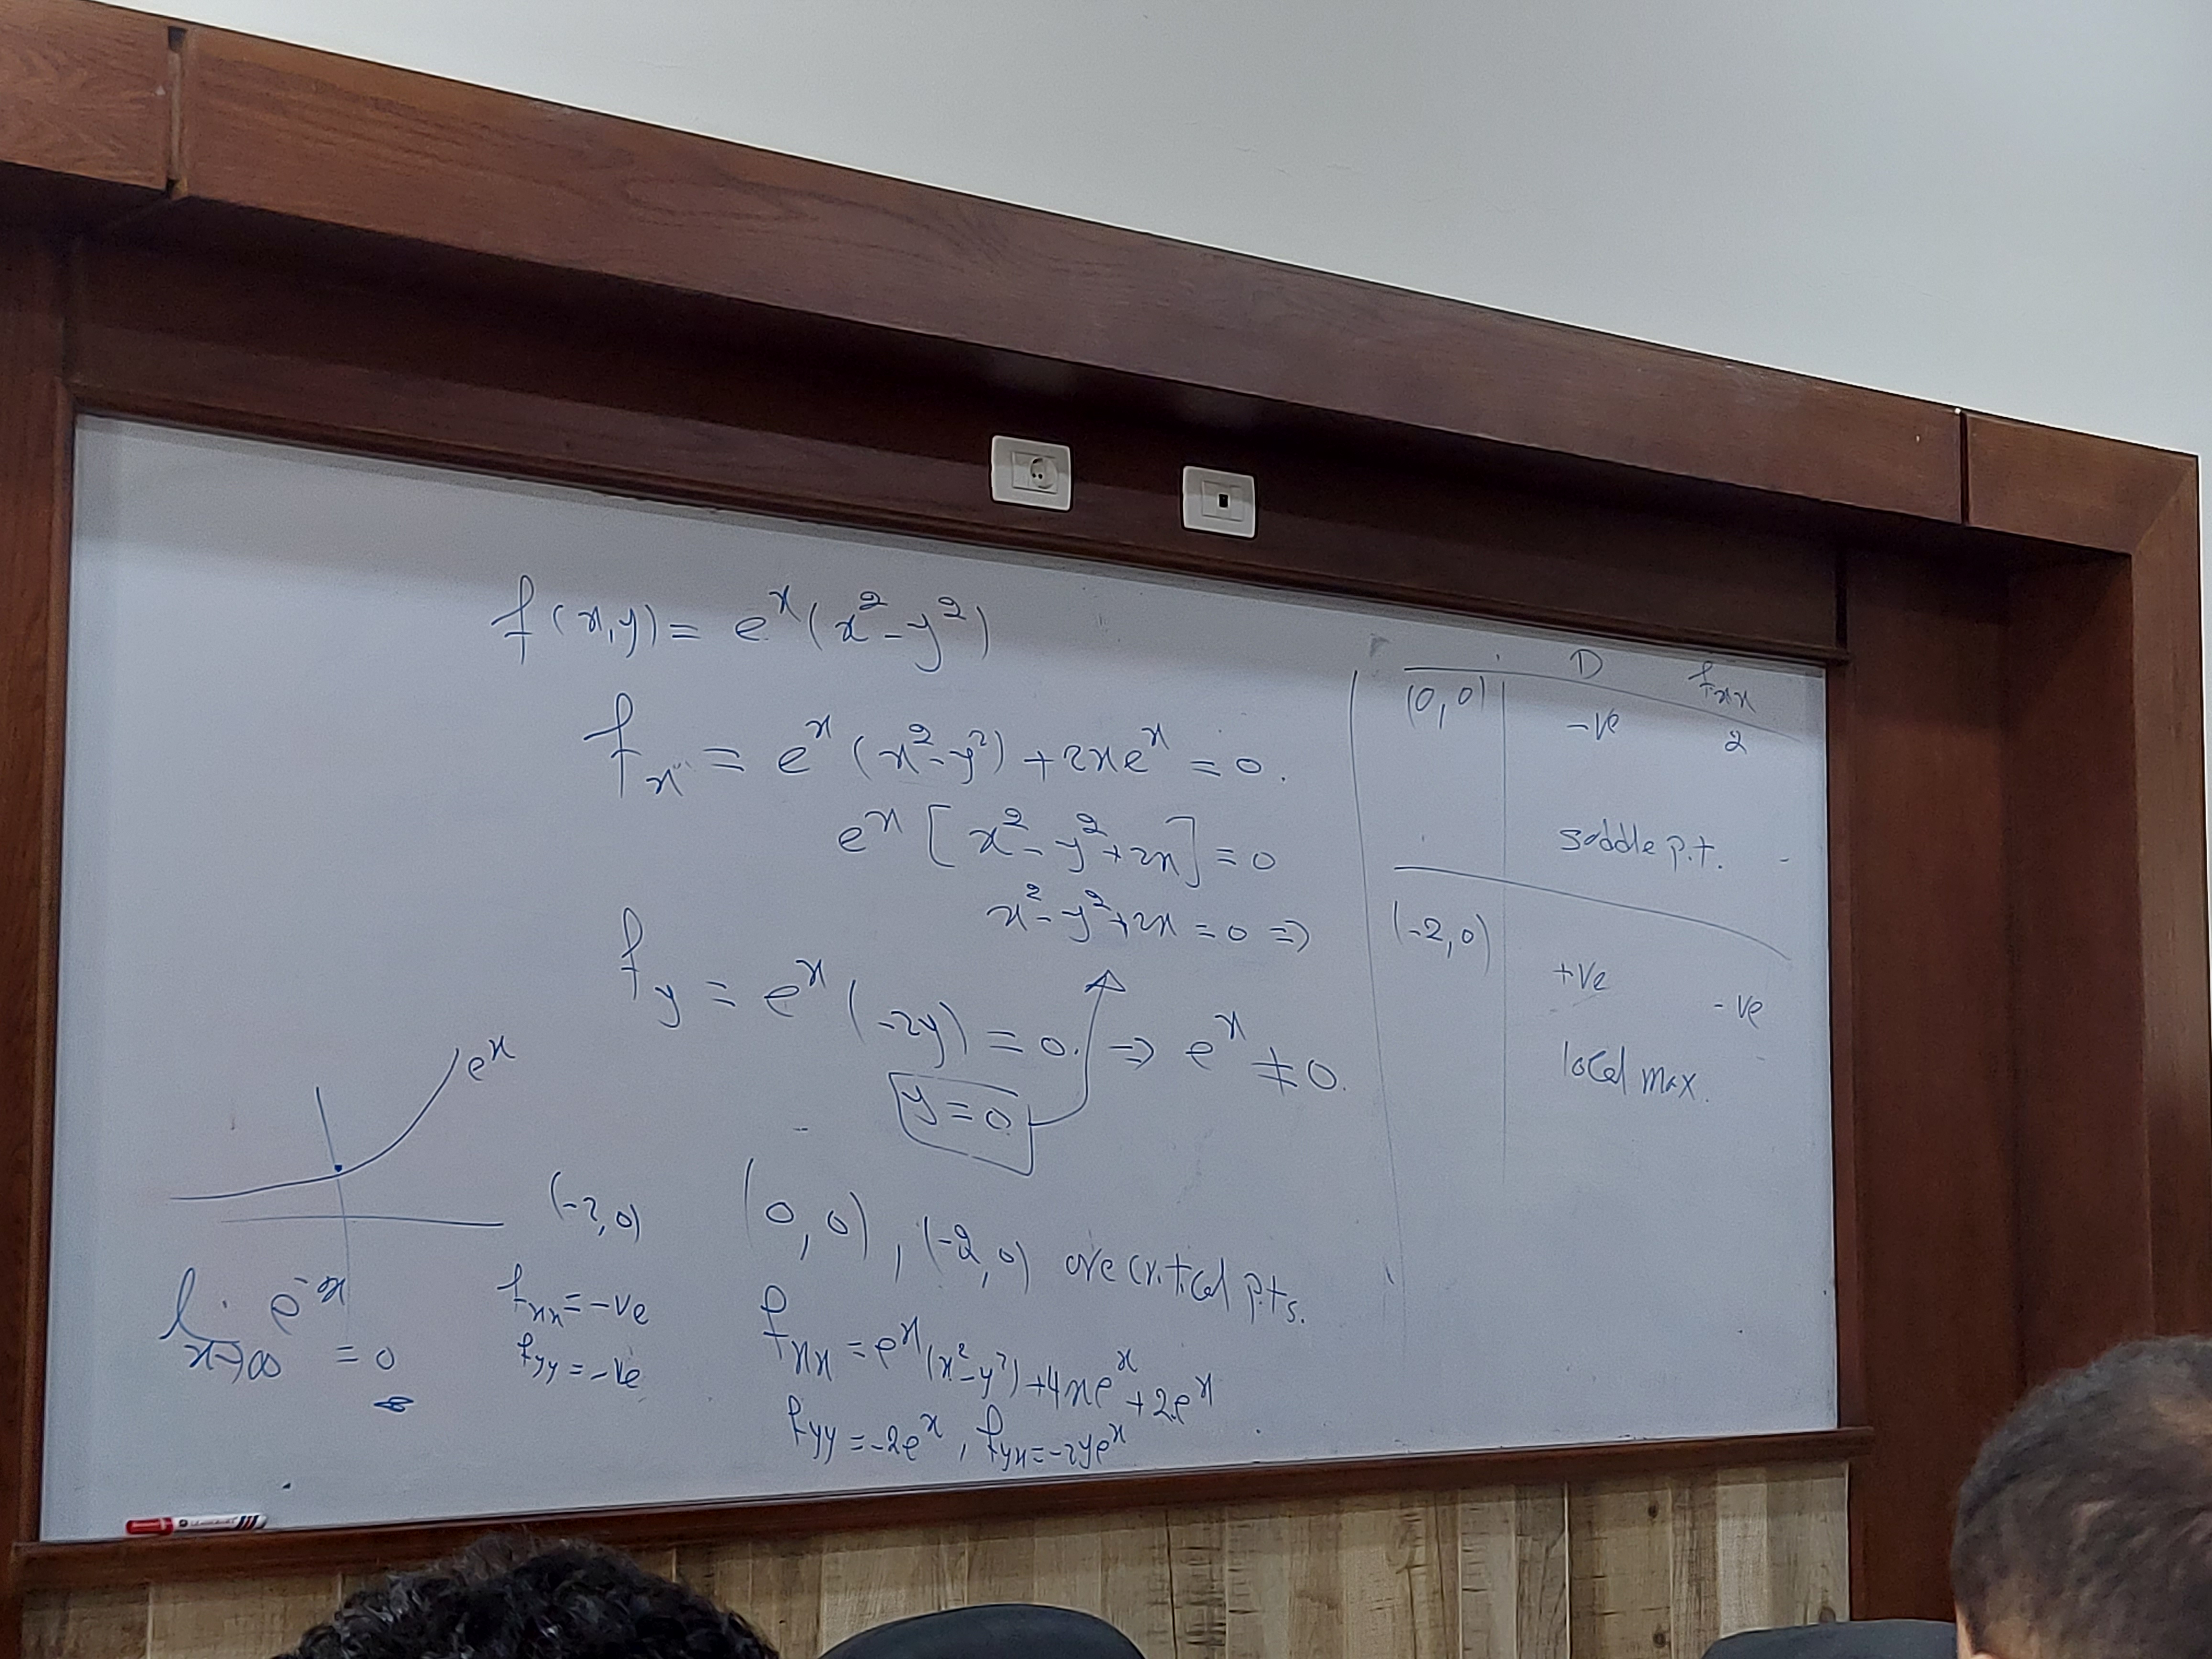 f(x,y) = e^x (x² - y²)
f_x = e^x (x² - y²) + 2xe^x = 0.
e^x [x² - y² + 2x] = 0
x² - y² + 2x = 0 ⇒
f_y = e^x (-2y) = 0. ⇒ e^x ≠ 0.
y = 0
(0,0), (-2,0) are critical p.ts.
f_xx = e^x (x² - y²) + 4xe^x + 2e^x
f_yy = -2e^x, f_yx = -2ye^x
e^x
lim x→∞ e^-x = 0
(-2,0)
f_xx = -ve
f_yy = -ve
D f_xx
(0,0) -ve 2
saddle p.t.
(-2,0) +ve -ve
local max.